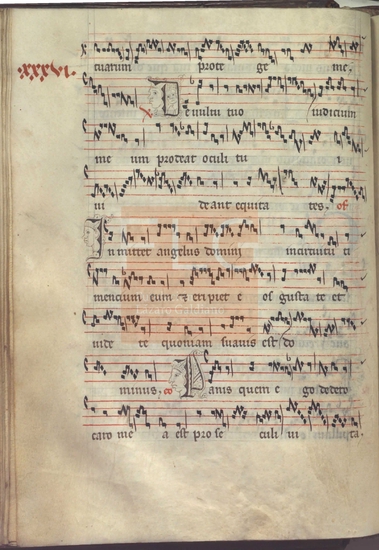 xxxvi.
tuarum prote ge me.
De uultu tuo iudicium
me um prodeat oculi tu i
ui deant equita tes. of
In mittet angelus domini incircuitu ti
mencium eum & eripiet e os gusta te et
uide te quoniam suauis est do
minus. co Panis quem e go dedero
caro me a est pro se culi ui ta.